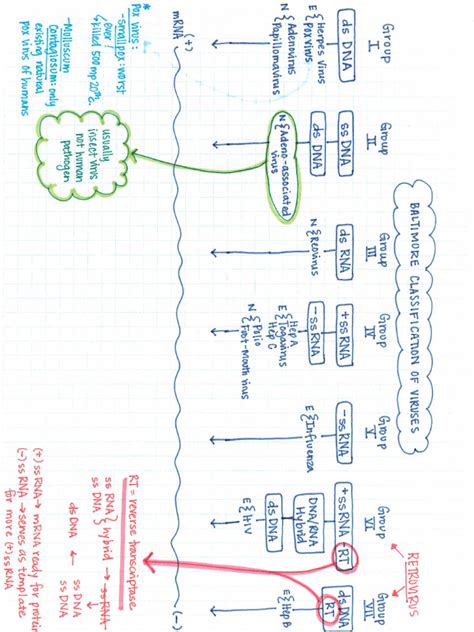 BALTIMORE CLASSIFICATION OF VIRUSES
Group
I
ds DNA
E { Herpes Virus
Pox virus
N { Adenovirus
Papillomavirus
mRNA (+)
* Pox virus:
-smallpox: worst
ever!
killed 500mp 20thC.
-Molluscum
Contagiosum: only
existing natural
pox virus of humans
Group
II
ss DNA
ds DNA
N { Adeno-associated
virus
usually
insect virus
not human
pathogen
Group
III
ds RNA
N { Reovirus
Group
IV
+ssRNA
-ssRNA
E { Hep A
Togavirus
Hep C
N { Polio
Foot-Mouth virus
Group
V
-ssRNA
E { Influenza
RETROVIRUS
Group
VI
+ssRNA-RT
DNA/RNA
Hybrid
ds DNA
E { HIV
Group
VII
ds DNA
RT
E { Hep B
(-)
RT = reverse transcriptase
ss RNA } hybrid → ss RNA
ss DNA
ss DNA
ds DNA ← ss DNA
ss DNA
(+) ssRNA → mRNA ready for protein
(-) ssRNA → serves as template
for more (+)ssRNA